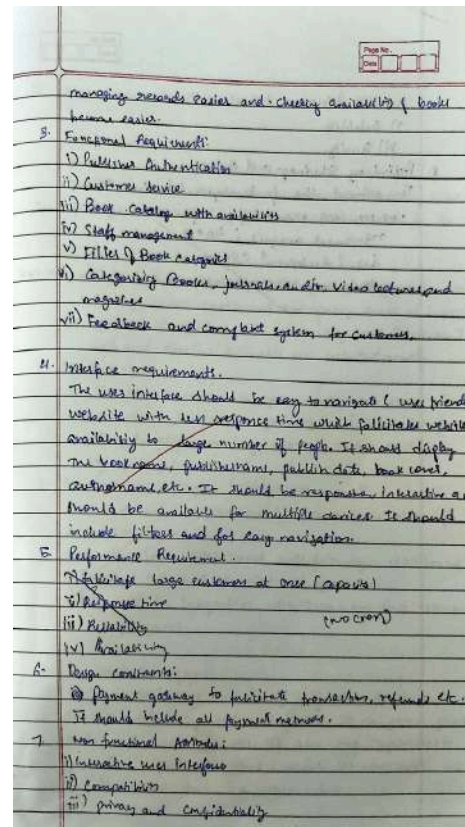 Page No.
Date
managing records easier and checking availability of books
become easier.
3. Functional Requirements:
i) Publisher Authentication
ii) Customer Service
iii) Book Catalog with availability
iv) Staff management
v) Filter of Book categories
vi) Categorizing Books, journals, audio, video lectures, and
magazines
vii) Feedback and complaint system for customers.
4. Interface requirements.
The user interface should be easy to navigate & user friend
website with less response time which falicitates website
availability to large number of people. It should display
The book name, publishername, publish date, book cover,
authorname, etc. It should be responsive, interactive a
should be available for multiple devices. It should
include filters and for easy navigation.
5. Performance Requirement.
i) falicitate large customers at once (capacity)
ii) Response time
(no cross)
iii) Reliability
iv) Availability
6. Design constraints:
Payment gateway to falicitate transaction, refunds etc.
It should include all payment methods.
7. Non functional Attributes:
i) Interactive user interface
ii) Compatibility
iii) privacy and confidentiality